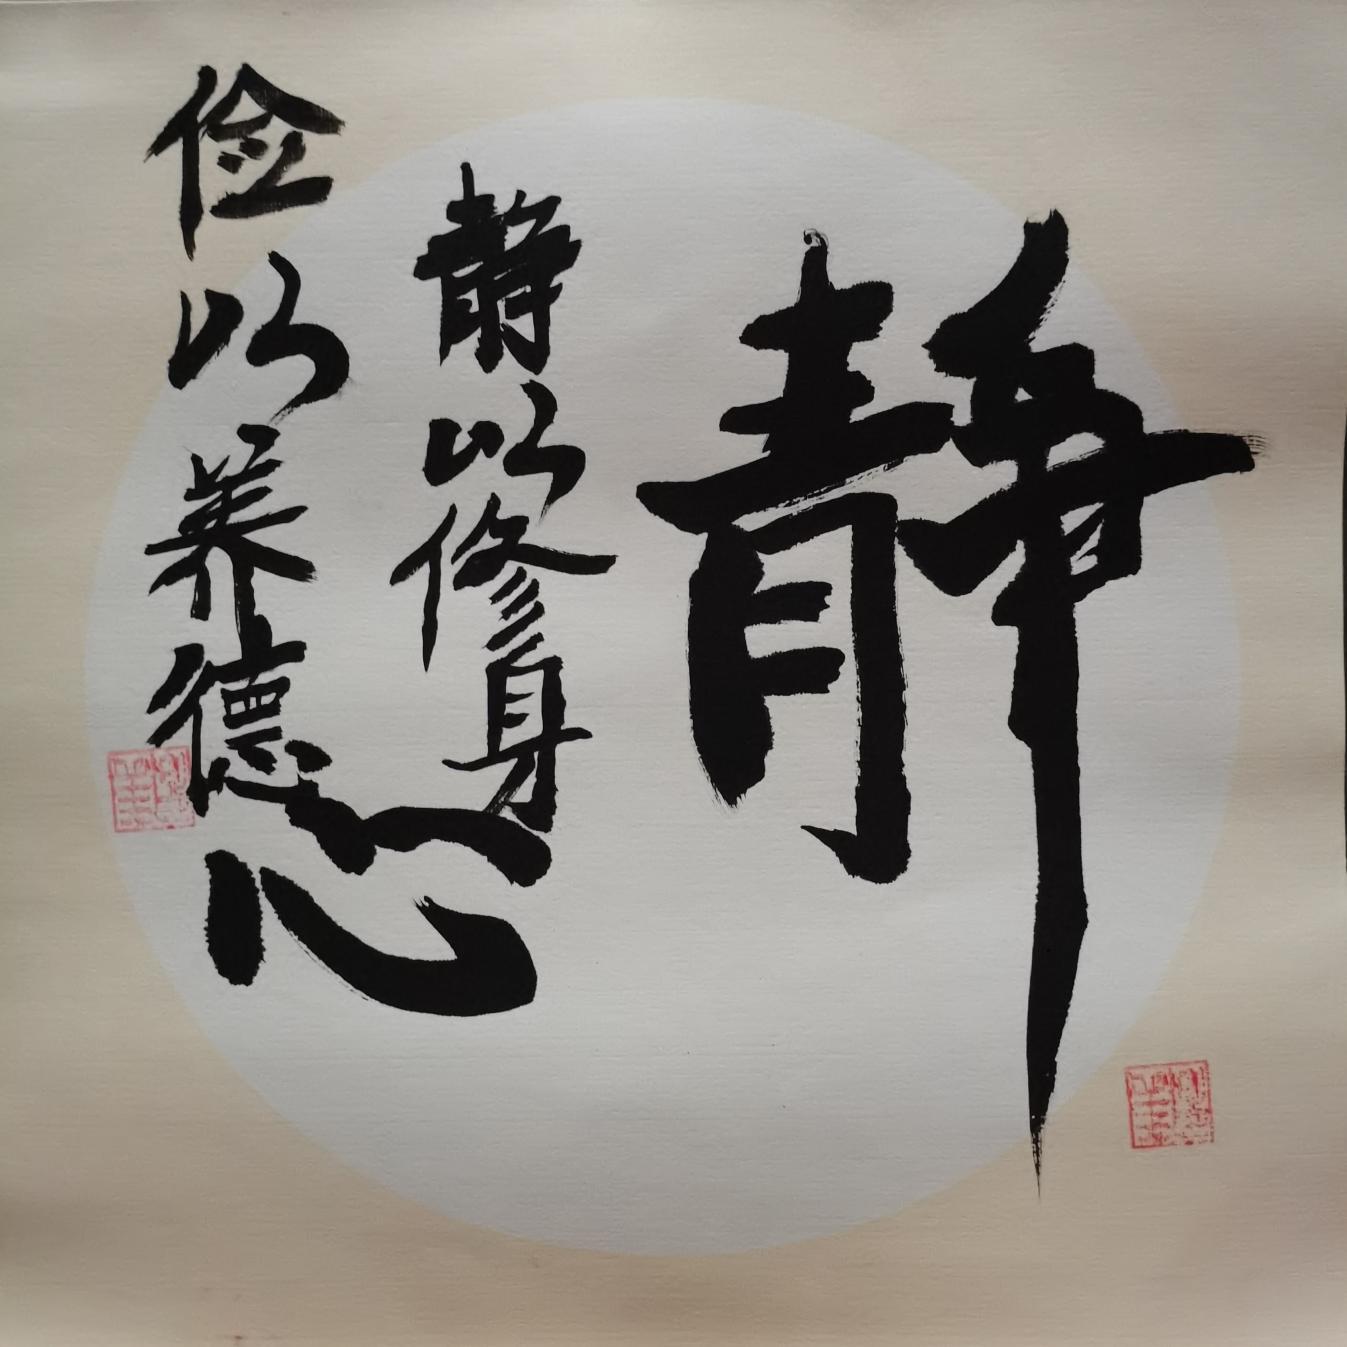 静心
静以修身
俭以养德